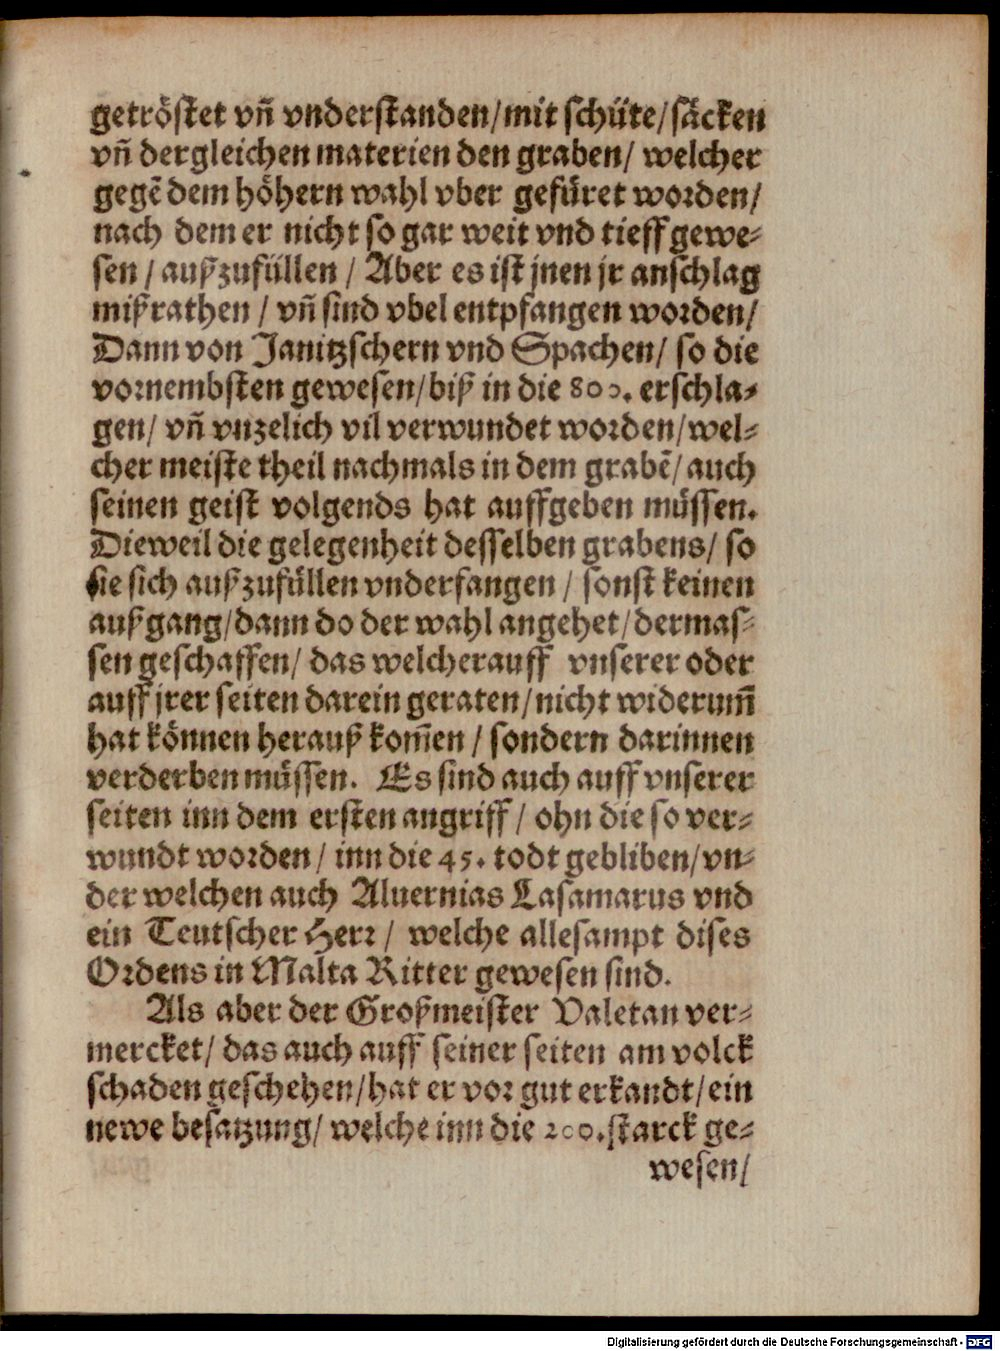 getröstet vñ vnderstanden/mit schüte/säcken
vñ dergleichen materien den graben/ welcher
gegē dem höhern wahl vber gefüret worden/
nach dem er nicht so gar weit vnd tieff gewe-
sen / außzufüllen / Aber es ist jnen jr anschlag
mißrathen / vñ sind vbel entpfangen worden/
Dann von Janitzschern vnd Spachen/ so die
vornembsten gewesen/biß in die 800. erschla-
gen/ vñ vnzelich vil verwundet worden/wel-
cher meiste theil nachmals in dem grabē/ auch
seinen geist volgends hat auffgeben müssen.
Dieweil die gelegenheit desselben grabens/ so
sie sich außzufüllen vnderfangen / sonst keinen
außgang/dann do der wahl angehet/dermas-
sen geschaffen/ das welcherauff vnserer oder
auff jrer seiten darein geraten/nicht widerum̄
hat können herauß kom̄en / sondern darinnen
verderben müssen. Es sind auch auff vnserer
seiten inn dem ersten angriff / ohn die so ver-
wundt worden/ inn die 45. todt gebliben/vn-
der welchen auch Aluernias Lasamarus vnd
ein Teutscher Herr / welche allesampt dises
Ordens in Malta Ritter gewesen sind.
Als aber der Großmeister Valetan ver-
mercket/ das auch auff seiner seiten am volck
schaden geschehen/hat er vor gut erkandt/ein
newe besatzung/ welche inn die 200.starck ge-
wesen/
Digitalisierung gefördert durch die Deutsche Forschungsgemeinschaft - DFG